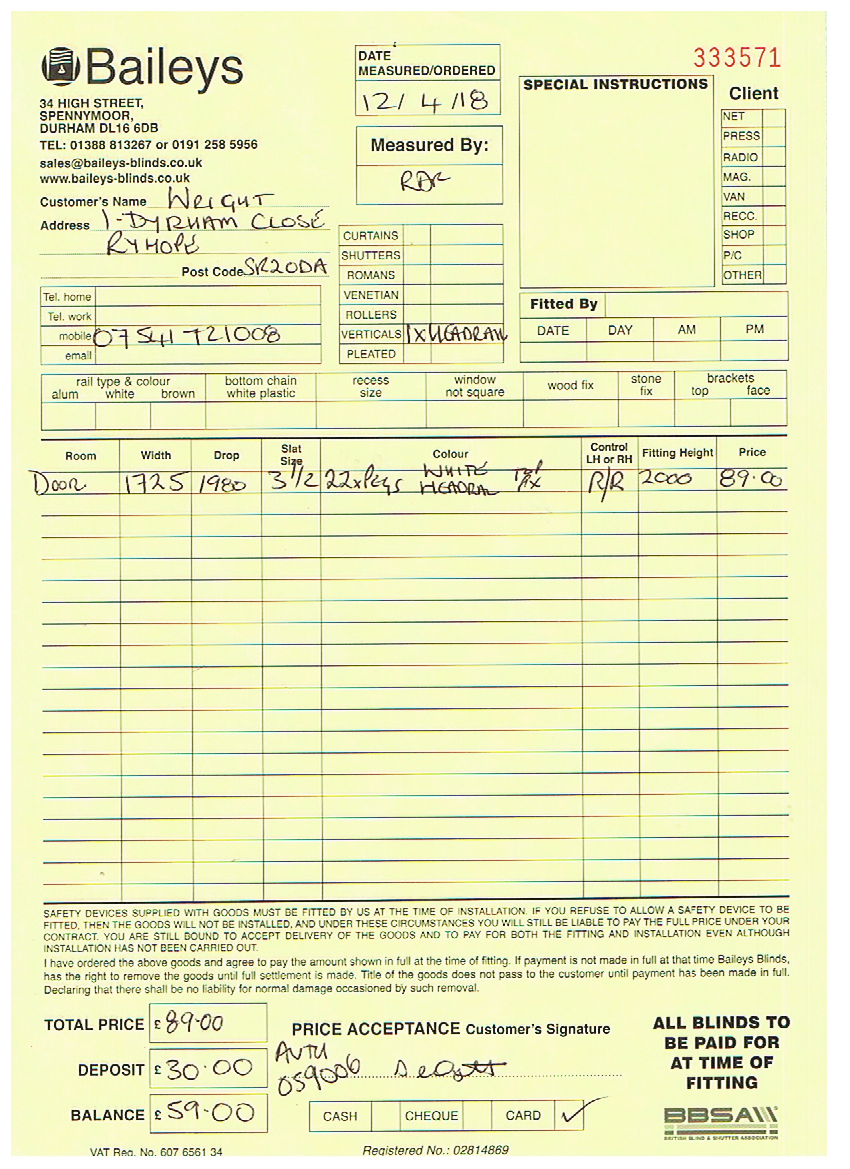 Baileys
34 HIGH STREET,
SPENNYMOOR,
DURHAM DL16 6DB
TEL: 01388 813267 or 0191 258 5956
sales@baileys-blinds.co.uk
www.baileys-blinds.co.uk
DATE
MEASURED/ORDERED
12/4/18
Measured By:
333571
SPECIAL INSTRUCTIONS
Client
NET
PRESS
RADIO
MAG.
VAN
RECC.
SHOP
P/C
OTHER
Customer's Name WRIGHT
Address 1 - DYRHAM CLOSE
RYHOPE
Post Code SR20DA
Tel. home
Tel. work
mobile 07541 721008
email
CURTAINS
SHUTTERS
ROMANS
VENETIAN
ROLLERS
VERTICALS 1 X HEADRAIL
PLEATED
Fitted By
DATE DAY AM PM
rail type & colour bottom chain recess window wood fix stone brackets
alum white brown white plastic size not square fix top face
Room Width Drop Slat Size Colour Control LH or RH Fitting Height Price
Door 1725 1980 3 1/2 22xPegs WHITE HEADRAIL Top Fix R/R 2000 89.00
SAFETY DEVICES SUPPLIED WITH GOODS MUST BE FITTED BY US AT THE TIME OF INSTALLATION. IF YOU REFUSE TO ALLOW A SAFETY DEVICE TO BE
FITTED, THEN THE GOODS WILL NOT BE INSTALLED, AND UNDER THESE CIRCUMSTANCES YOU WILL STILL BE LIABLE TO PAY THE FULL PRICE UNDER YOUR
CONTRACT. YOU ARE STILL BOUND TO ACCEPT DELIVERY OF THE GOODS AND TO PAY FOR BOTH THE FITTING AND INSTALLATION EVEN ALTHOUGH
INSTALLATION HAS NOT BEEN CARRIED OUT.
I have ordered the above goods and agree to pay the amount shown in full at the time of fitting. If payment is not made in full at that time Baileys Blinds,
has the right to remove the goods until full settlement is made. Title of the goods does not pass to the customer until payment has been made in full.
Declaring that there shall be no liability for normal damage occasioned by such removal.
TOTAL PRICE £ 89.00
DEPOSIT £ 30.00
BALANCE £ 59.00
PRICE ACCEPTANCE Customer's Signature
AUTH
059006
CASH CHEQUE CARD ✓
ALL BLINDS TO
BE PAID FOR
AT TIME OF
FITTING
BBSA
BRITISH BLIND & SHUTTER ASSOCIATION
VAT Reg. No. 607 6561 34
Registered No.: 02814869